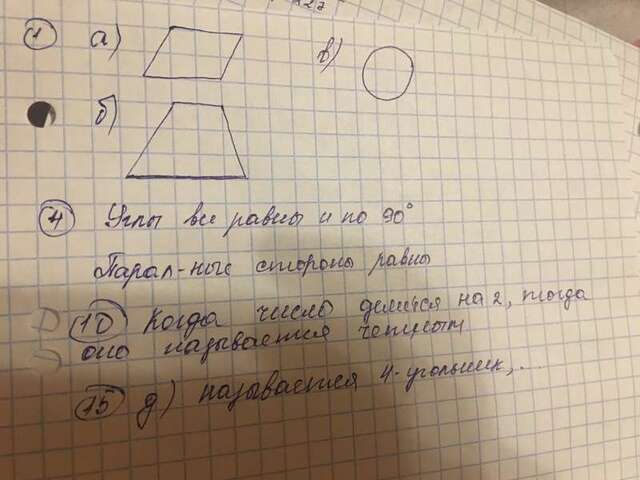 ① а) в)
б)
④ Углы все равны и по 90°
Парал-ные стороны равны
⑩ Когда число делится на 2, тогда
оно называется четным
⑮ д) называется 4-угольник, ...